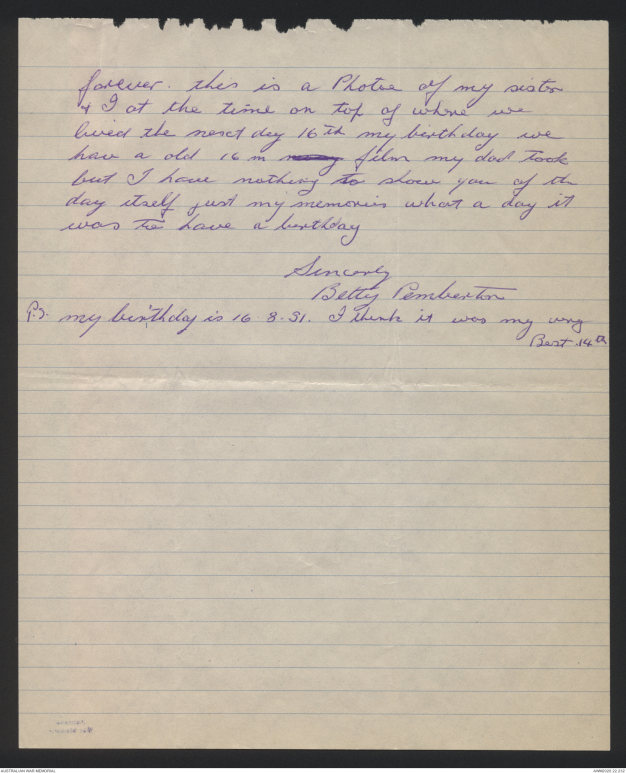 forever. this is a Photoe of my sister
& I at the time on top of where we
lived the nesct dey 16th my birthday we
have a old 16 m film my dad took
but I have nothing to show you of the
day itself just my memories what a day it
was to have a birthday
Sincerly
Betty Pemberton
P.S. my birthday is 16-8-31. I think it was my very
Best 14th
AUSTRALIAN WAR MEMORIAL